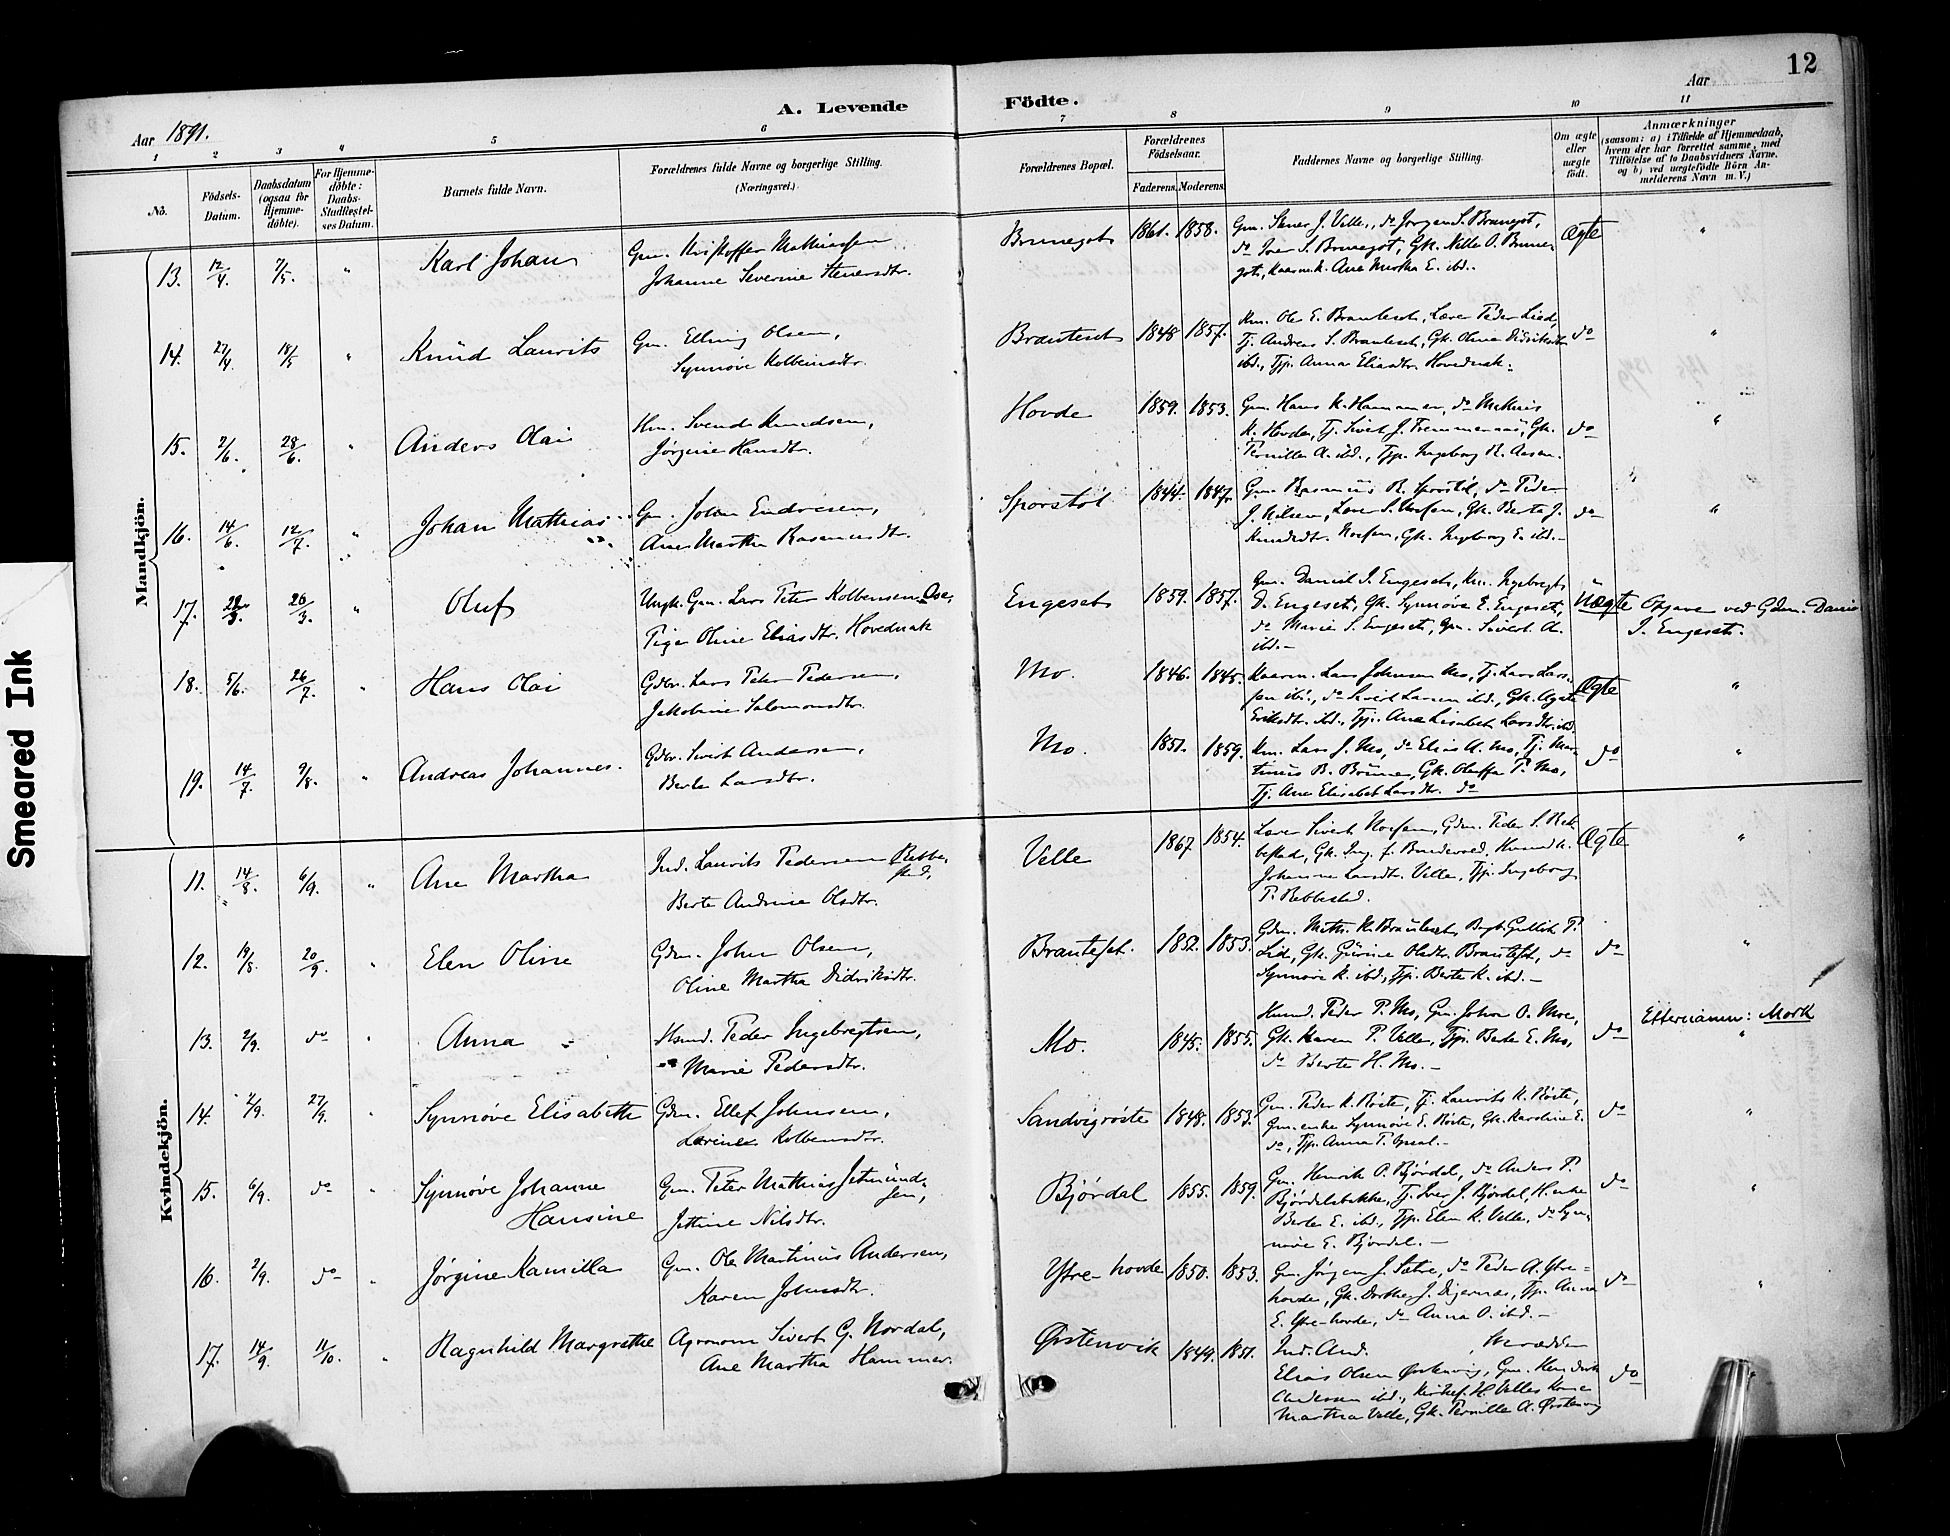 12
A. Levende Födte.
Aar 1891.
Aar
1 2 3 4 5 6 7 8 9 10 11
No.
Födsels-Datum.
Daabsdatum (ogsaa for Hjemmedøbte).
For Hjemmedøbte: Daabs-Stadfæstelses Datum.
Barnets fulde Navn.
Forældrenes fulde Navne og borgerlige Stilling. (Næringsvei.)
Forældrenes Bopæl.
Forældrenes Födselsaar.
Faderens. Moderens.
Faddernes Navne og borgerlige Stilling.
Om ægte eller uægte født.
Anmærkninger
(saasom: a) i Tilfælde af Hjemmedaab, hvem der har forrettet samme, med Tilføielse af to Daabsvidners Navne. og b) ved uægtefødte Börn Anmelderens Navn m. V.)
Mandkjön.
13. 12/4 7/5. " Karl Johan
Gm. Kristoffer Mathiassen
Johanne Severine Stenersdtr.
Brunegot 1861. 1858.
Gm. Stener J. Velle, do Jørgen S. Brunegot,
do Iver S. Brunegot, Gk. Nille O. Brune-
got, Ane Martha E. ibd.
Ægte "
14. 27/4. 18/5 " Knud Laurits
Gm. Elling Olsen,
Synnøve Kolbeinsdtr.
Brauteset 1848 1857.
Km. Ole E. Brauteset, Lærer Peder Lied,
Tj. Andreas S. Brauteset, Gk. Oline Didriksdtr
ibd., Tjp. Anna Eliasdtr. Hovednak.
do "
15. 2/6. 28/6. " Anders Olai
Svend Knudsen,
Jørgine Hansdtr.
Hovde 1859. 1853.
Gm. Hans K. Hammer, do
K. Hovde, Tj. Sivert J. Gk.
Pernille A. ibd., Tjp. Ingeborg R. Aasen.
do "
16. 14/6. 12/7. " Johan Mathias
Gm. Johan Endresen,
Ane Martha Rasmusdtr.
Sporstøl 1844. 1847.
Gm. Rasmus R. Sporstøl, do Peder
J. Nilsen, Gk. Berta J.
Knudsdtr. Gk. Ingeborg E. ibd.
do "
17. 26/3. " Oluf
Ungk. Gm. Lars Peter Kolbensen Ose,
Pige Oline Eliasdtr. Hovednak
Engeset 1859. 1857.
Gm. Daniel I. Engeset, Km. Ingebregt
D. Engeset, Gk. Synnøve E. Engeset,
do Marie S. Engeset, Gm. Sivert A.
ibd.
Uægte Opgave ved Gdm. Daniel
I. Engeset.
18. 5/6. 26/7. " Hans Olai
Gdbr. Lars Peter Pedersen,
Jakobine Salomonsdtr.
Mo. 1846. 1845.
Lars Johnsen Mo, Tj. Lars Lars-
sen ibd., do Sivert Larsen ibd., Gk. Agate
Eriksdtr. ibd., Tjp. Ane Lisabet Larsdtr. ibd.
Ægte "
19. 14/7. 9/8. " Andreas Johannes.
Gdbr. Sivert Andersen,
Berte Larsdtr.
Mo. 1851. 1859.
Km. Lars J. Mo, do Elias A. Mo, Tj. Mar-
tinus B. Brune, Gk. Oluffa P. Mo,
Tj. Ane Elisabet Larsdtr. do
do "
Kvindekjön.
11. 14/8. 6/9. " Ane Martha
Ind. Laurits Pedersen Rebbe-
stad,
Berte Andrine Olsdtr.
Velle 1867 1854.
Lærer Sivert Gdm. Peder S. Reb-
bestad, Gk.
Johanne Larsdtr. Velle, Tjp. Ingeborg
P. Rebbestad.
Ægte "
12. 19/8. 20/9. " Elen Oline
Gdm. John Olsen,
Oline Martha Didriksdtr.
Brauteset. 1852. 1853.
Gdm. Math. K. Brauteset, P.
Lid, Gk. Gurine Olsdtr. Brauteset, do
Synnøve K. ibd., Tjp. Berte K. ibd.
do "
13. 2/9. do " Anna
Husmd. Peder Ingebregtsen,
Marie Pedersdtr.
Mo. 1845. 1855.
Husmd. Peder P. Mo, Gm. Johan O. Moe,
Gk. Karen P. Velle, Tjp. Berte E. Mo,
do Berte H. Mo.
do Efternavn: Mork
"
14. 2/9. 27/9. " Synnøve Elisabeth
Gdm. Ellef Johnsen,
Lovine Kolbensdtr.
Sandvigrøste 1848. 1853.
Gm. Peder K. Røste, Tj. Laurits K. Røste,
Gm.enke Synnøve E. Røste, Gk. Karoline E.
do, Tjp. Anna P.
do "
15. 6/9. do " Synnøve Johanne
Hansine
Gm. Peter Mathias Jetmund-
sen,
Jettine Nilsdtr.
Bjørdal 1855. 1859.
Gm. Henrik P. Bjørdal, do Anders P.
Bjørdalsbakke, Tj. Iver J. Bjørdal, H.enke
Berte E. ibd., Tjp. Elen K. Velle, do Syn-
nøve E. Bjørdal.
do "
16. 2/9. do " Jørgine Kamilla
Gm. Ole Martinus Andersen,
Karen Johnsdtr.
Ytre-hovde 1850. 1853.
Gm. Jørgen J. Sætre, do Peder A. Ytre-
hovde, Gk. Dorthe J. Digernæs, Tjp. Anna
E. Ytre-hovde, do Anna O. ibd.
do "
17. 14/9. 11/10. " Ragnhild Margrethe
Agronom Sivert G. Nordal,
Ane Martha Hammer.
Ørstenvik 1844. 1851.
Ind. And.
Elias Olsen Ørstenvig, Gm. Hendrik
Andersen ibd., H. Velles Kone
Martha Velle, Gk. Pernille A. Ørstenvig
do "
Smeared Ink